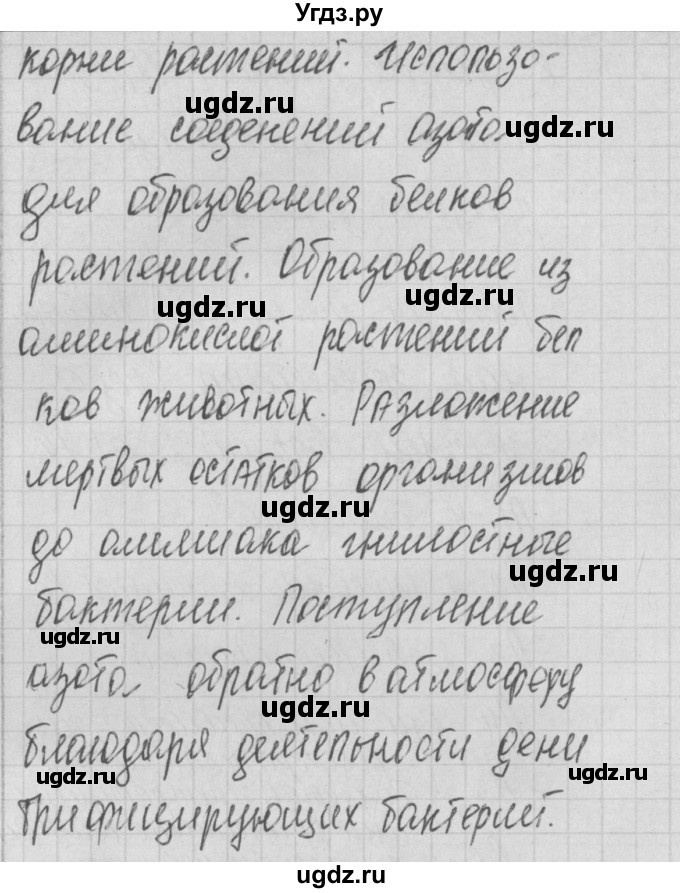 Угдз.ру
корни растений. Использо-
ugdz.ru
вание соеденений азота
ugdz.ru
для образования белков
растений. Образование из
ugdz.ru
ugdz.ru
аминокислот растений бел
ков животных. Разложение
мертвых остатков организмов
ugdz.ru
до аммиака гнилостные
ugdz.ru
бактерии. Поступление
ugdz.ru
азота обратно в атмосферу
ugdz.ru
благодаря деятельности дени
ugdz.ru
ugdz.ru
трифицирующих бактерий.
ugdz.ru